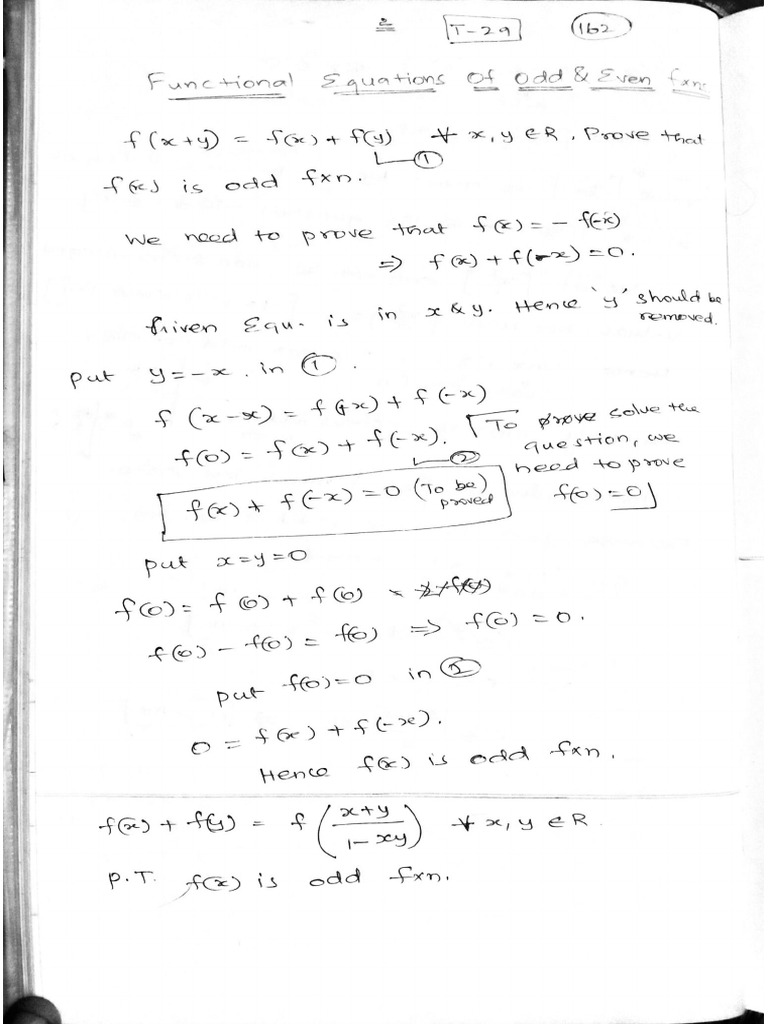 T-29 162
Functional Equations Of Odd & Even fxns
f(x+y) = f(x) + f(y) ∀ x, y ∈ R, Prove that
①
f(x) is odd fxn.
We need to prove that f(x) = - f(-x)
⇒ f(x) + f(-x) = 0.
Given Equ. is in x & y. Hence 'y' should be removed.
put y = -x. in ①.
f (x-x) = f(+x) + f(-x)
f(0) = f(x) + f(-x).
②
[To prove solve the
question, we
need to prove
f(0) = 0]
f(x) + f(-x) = 0 (To be proved)
put x = y = 0
f(0) = f(0) + f(0)
f(0) - f(0) = f(0) ⇒ f(0) = 0.
put f(0) = 0 in ②
0 = f(x) + f(-x).
Hence f(x) is odd fxn.
f(x) + f(y) = f((x+y)/(1-xy)) ∀ x, y ∈ R
P.T. f(x) is odd fxn.